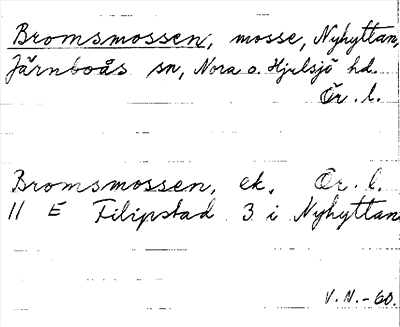 Bromsmossen, mosse, Nyhyttan,
Järnboås sn, Nora o. Hjulsjö hd.
Ör. l.
Bromsmossen, ek. Ör. l.
11 E Filipstad 3 i Nyhyttan
V. N. -60.